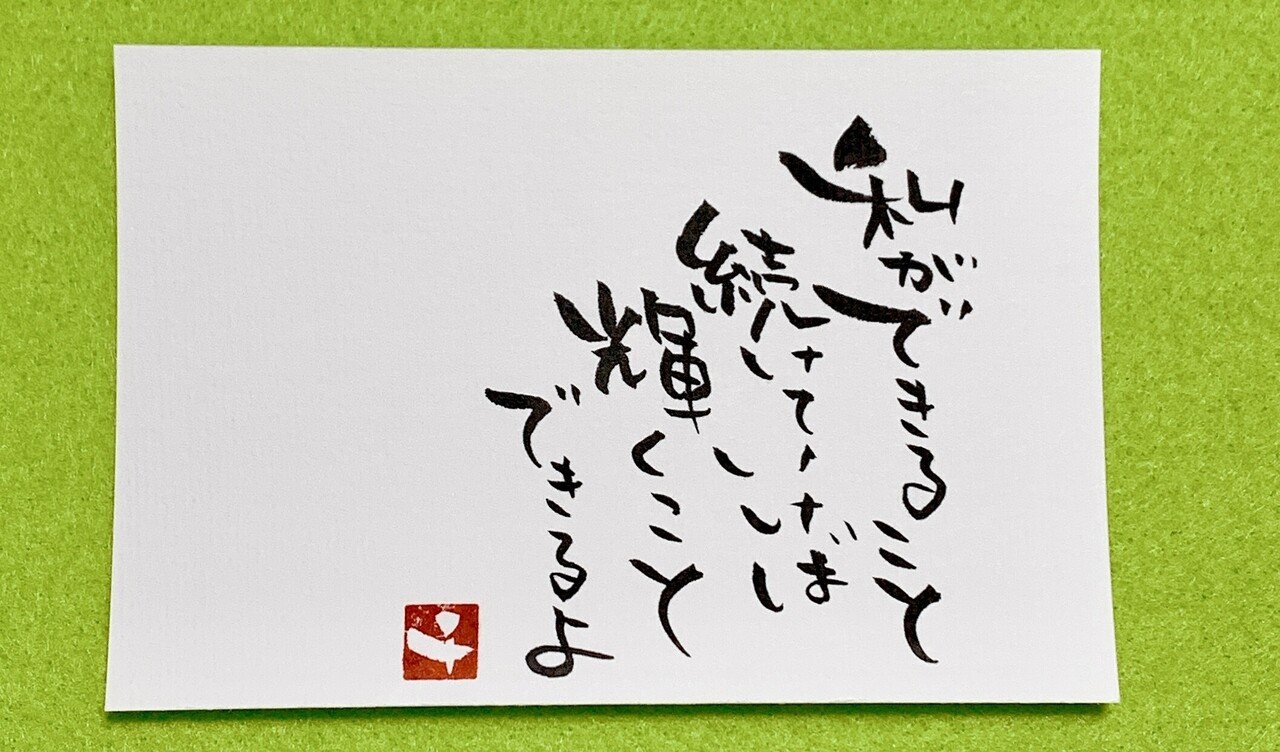 私ができること
続けていけば
輝くこと
できるよ